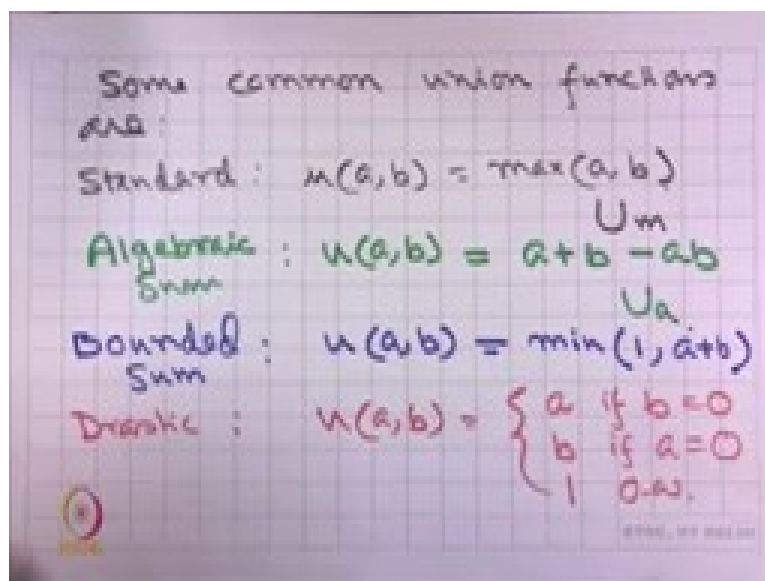 Some common union functions
are:
Standard: u(a,b) = max(a,b)
Um
Algebraic : u(a,b) = a+b-ab
Sum
Ua
Bounded : u(a,b) = min(1, a+b)
Sum
Drastic : u(a,b) = { a if b=0
b if a=0
1 o.w.